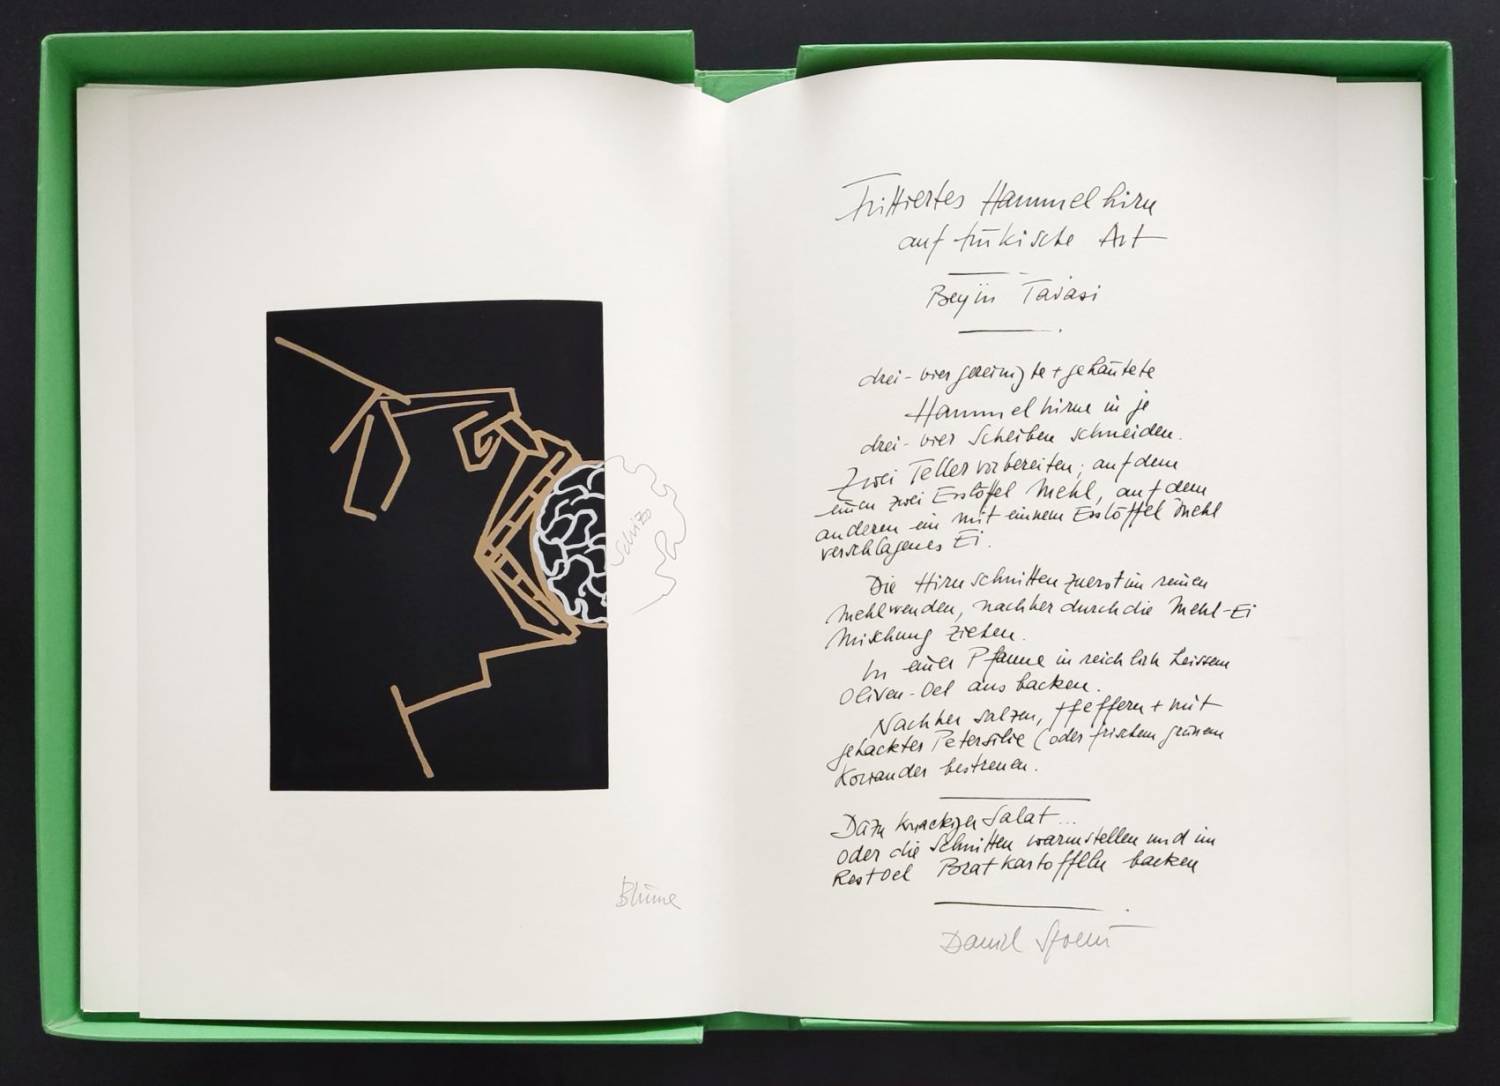 Schizo
Blume
Frittiertes Hammelhirn
auf türkische Art
Beyin Tavasi
drei-vier gereinigte + gehäutete
Hammelhirne in je
drei-vier Scheiben schneiden.
Zwei Teller vorbereiten; auf dem
einen zwei Esslöffel Mehl, auf dem
anderen ein mit einem Esslöffel Mehl
verschlagenes Ei.
Die Hirnschnitten zuerst im reinen
Mehl wenden, nachher durch die Mehl-Ei
Mischung ziehen.
In einer Pfanne in reichlich heissem
Oliven-Oel ausbacken.
Nachher salzen, pfeffern + mit
gehackter Petersilie (oder frischem grünem
Koriander bestreuen.
Dazu knackiger Salat...
oder die Schnitten warmstellen und im
Restoel Bratkartoffeln backen
Daniel Spoerri